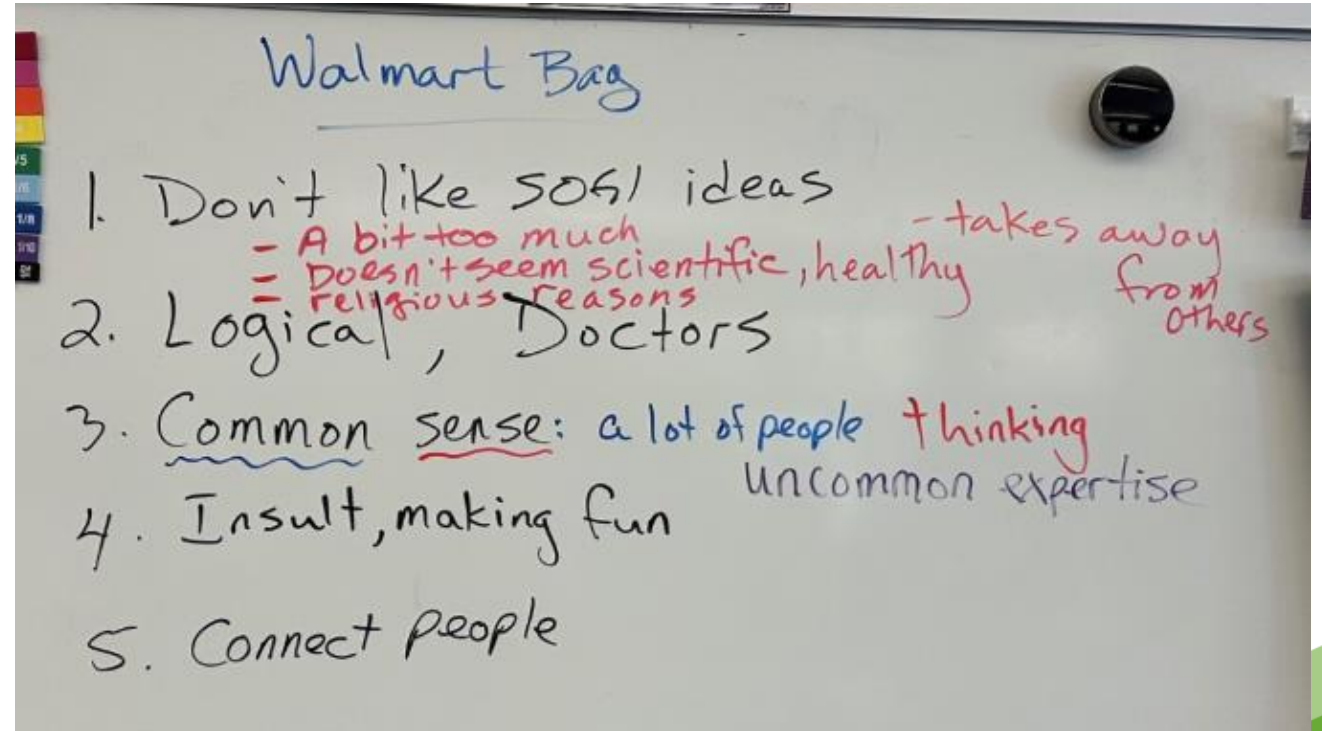 Walmart Bag
1. Don't like SOGI ideas
- A bit too much
- Doesn't seem scientific, healthy
- religious reasons
- takes away
from
others
2. Logical, Doctors
3. Common sense: a lot of people thinking
uncommon expertise
4. Insult, making fun
5. Connect people
1/5
1/8
1/10